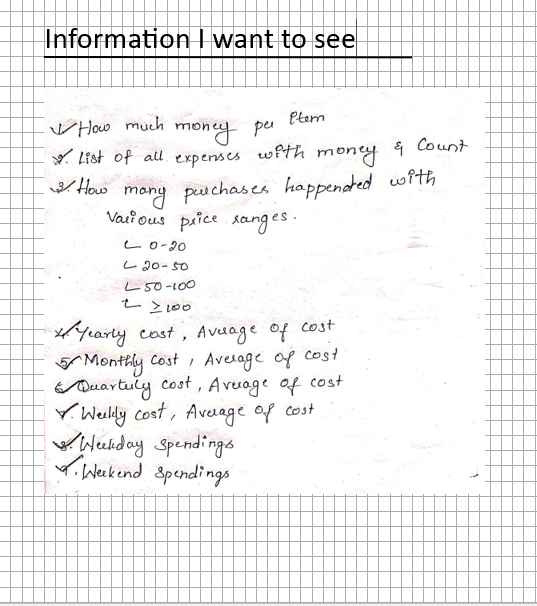 Information I want to see
1. How much money per Item
2. List of all expenses with money & Count
3. How many purchases happended with
Various price ranges.
0-20
20-50
50-100
≥100
4. Yearly cost, Average of cost
5. Monthly cost, Average of cost
6. Quarterly cost, Average of cost
7. Weekly cost, Average of cost
8. Weekday spendings
9. Weekend spendings